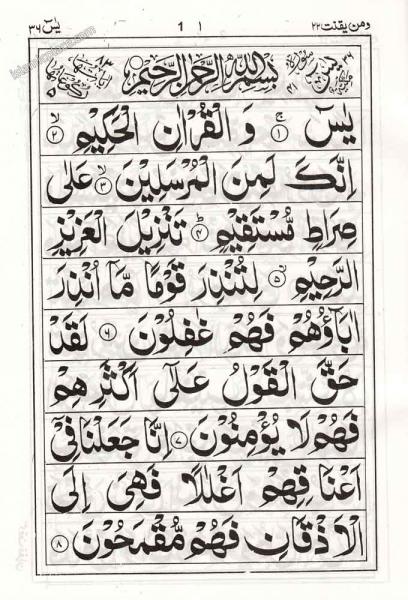 يٰسٓ ٣٦ 1 ١ وَمَن يَقْنُتْ ٢٢
بِسْمِ اللّٰهِ الرَّحْمٰنِ الرَّحِيْمِ
يٰسٓ ۚ ﴿١﴾ وَ الْقُرْاٰنِ الْحَكِيْمِ ۙ ﴿٢﴾
اِنَّكَ لَمِنَ الْمُرْسَلِيْنَ ۙ ﴿٣﴾ عَلٰى
صِرَاطٍ مُّسْتَقِيْمٍ ؕ ﴿٤﴾ تَنْزِيْلَ الْعَزِيْزِ
الرَّحِيْمِ ۙ ﴿٥﴾ لِتُنْذِرَ قَوْمًا مَّاۤ اُنْذِرَ
اٰبَآؤُهُمْ فَهُمْ غٰفِلُوْنَ ﴿٦﴾ لَقَدْ
حَقَّ الْقَوْلُ عَلٰٓى اَكْثَرِهِمْ
فَهُمْ لَا يُؤْمِنُوْنَ ﴿٧﴾ اِنَّا جَعَلْنَا فِيْۤ
اَعْنَاقِهِمْ اَغْلٰلًا فَهِيَ اِلَى
الْاَذْقَانِ فَهُمْ مُّقْمَحُوْنَ ﴿٨﴾